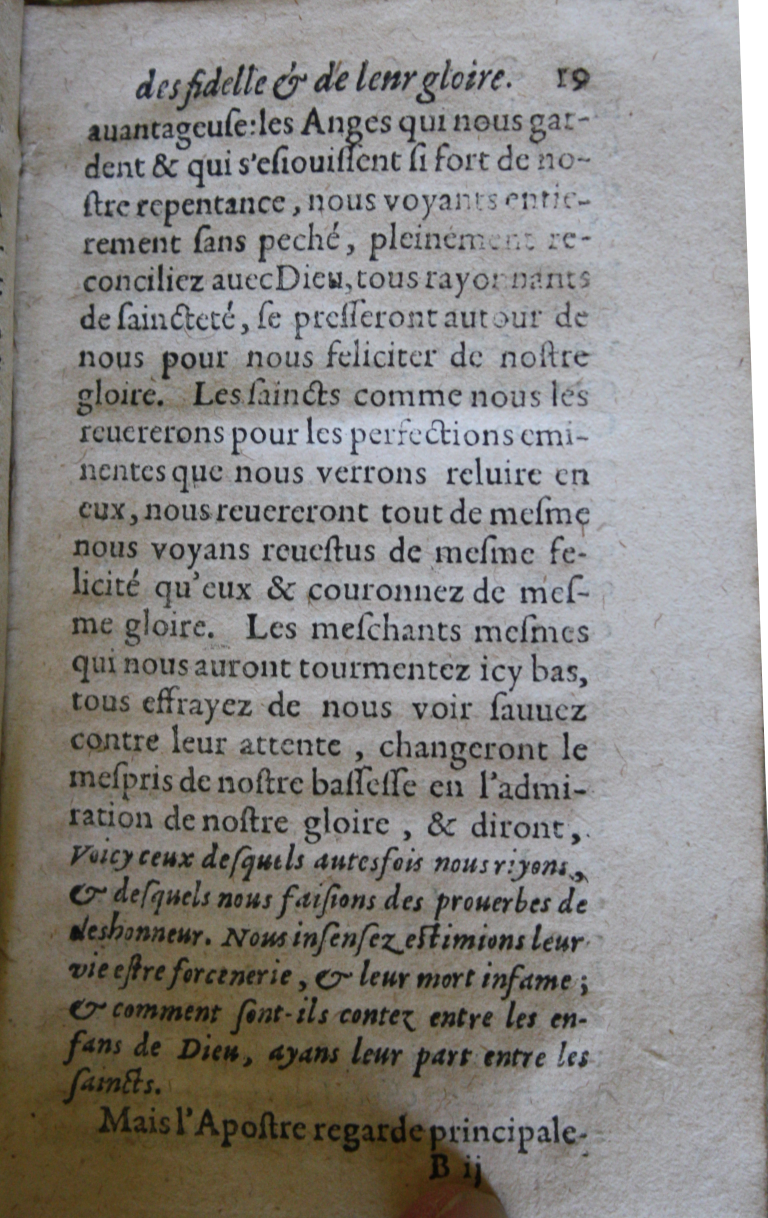 des fidelle & de lenr gloire. 19
auantageuse: les Anges qui nous gar-
dent & qui s'esiouissent si fort de no-
stre repentance, nous voyants entie-
rement sans peché, pleinement re-
conciliez auec Dieu, tous rayonnants
de saincteté, se presseront autour de
nous pour nous feliciter de nostre
gloire. Les saincts comme nous les
reuererons pour les perfections emi-
nentes que nous verrons reluire en
eux, nous reuereront tout de mesme
nous voyans reuestus de mesme fe-
licité qu'eux & couronnez de mes-
me gloire. Les meschants mesmes
qui nous auront tourmentez icy bas,
tous effrayez de nous voir sauuez
contre leur attente, changeront le
mespris de nostre bassesse en l'admi-
ration de nostre gloire, & diront,
Voicy ceux desquels autesfois nous riyons,
& desquels nous faisions des prouerbes de
deshonneur. Nous insensez estimions leur
vie estre forcenerie, & leur mort infame;
& comment sont-ils contez entre les en-
fans de Dieu, ayans leur part entre les
saincts.
Mais l'Apostre regarde principale-
B ij